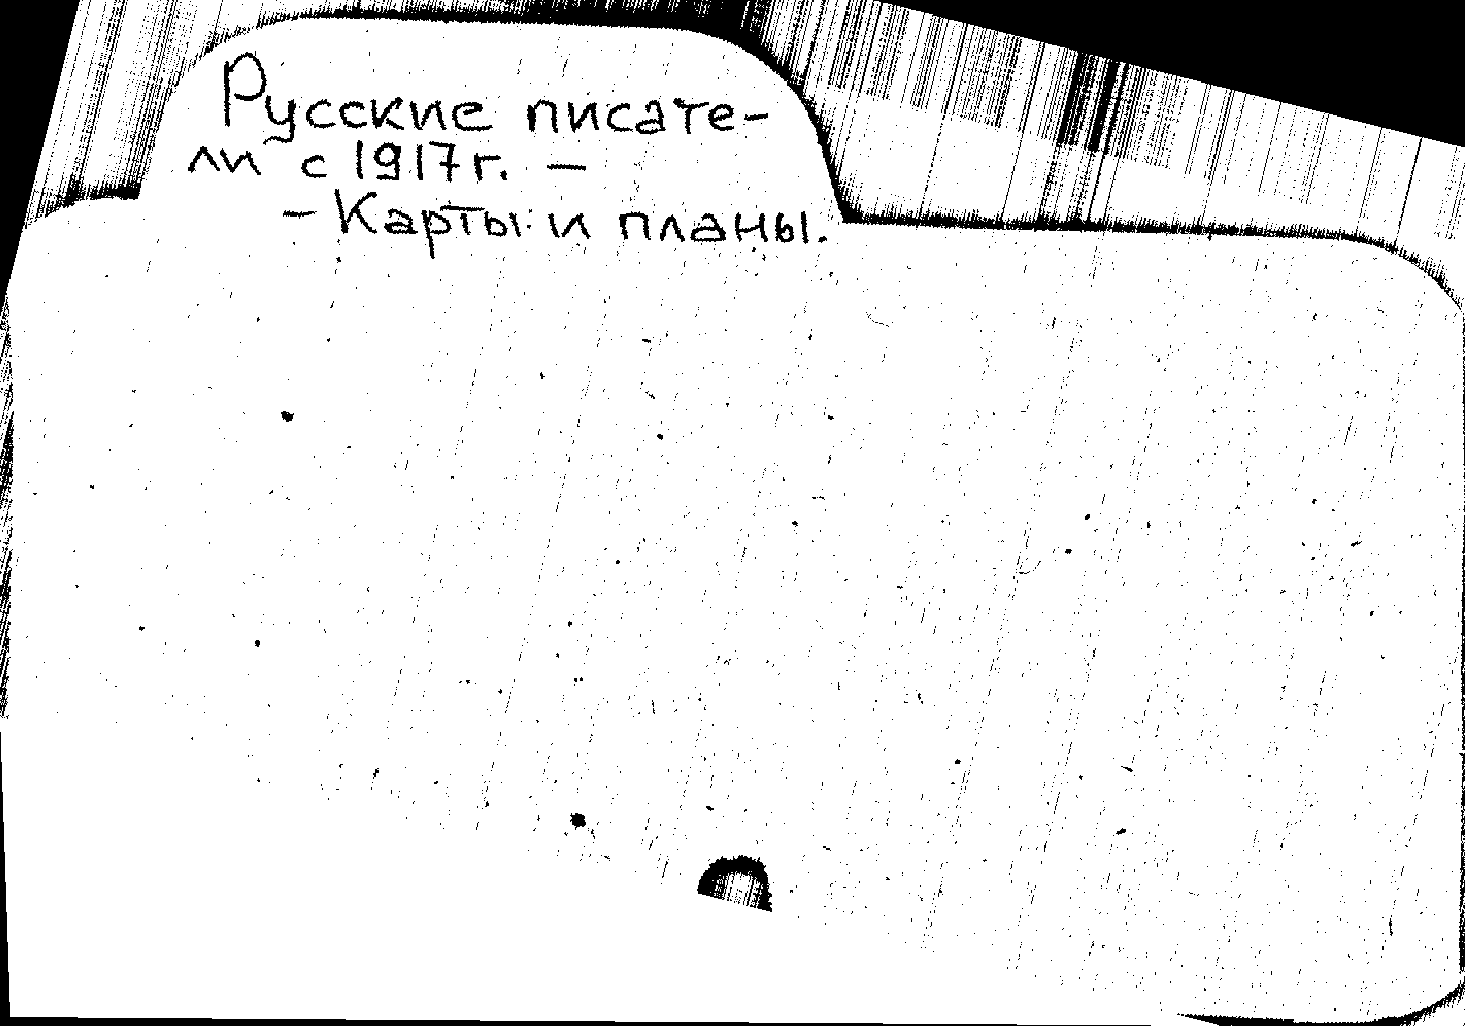 Русские писате-
ли с 1917 г. –
– Карты и планы.